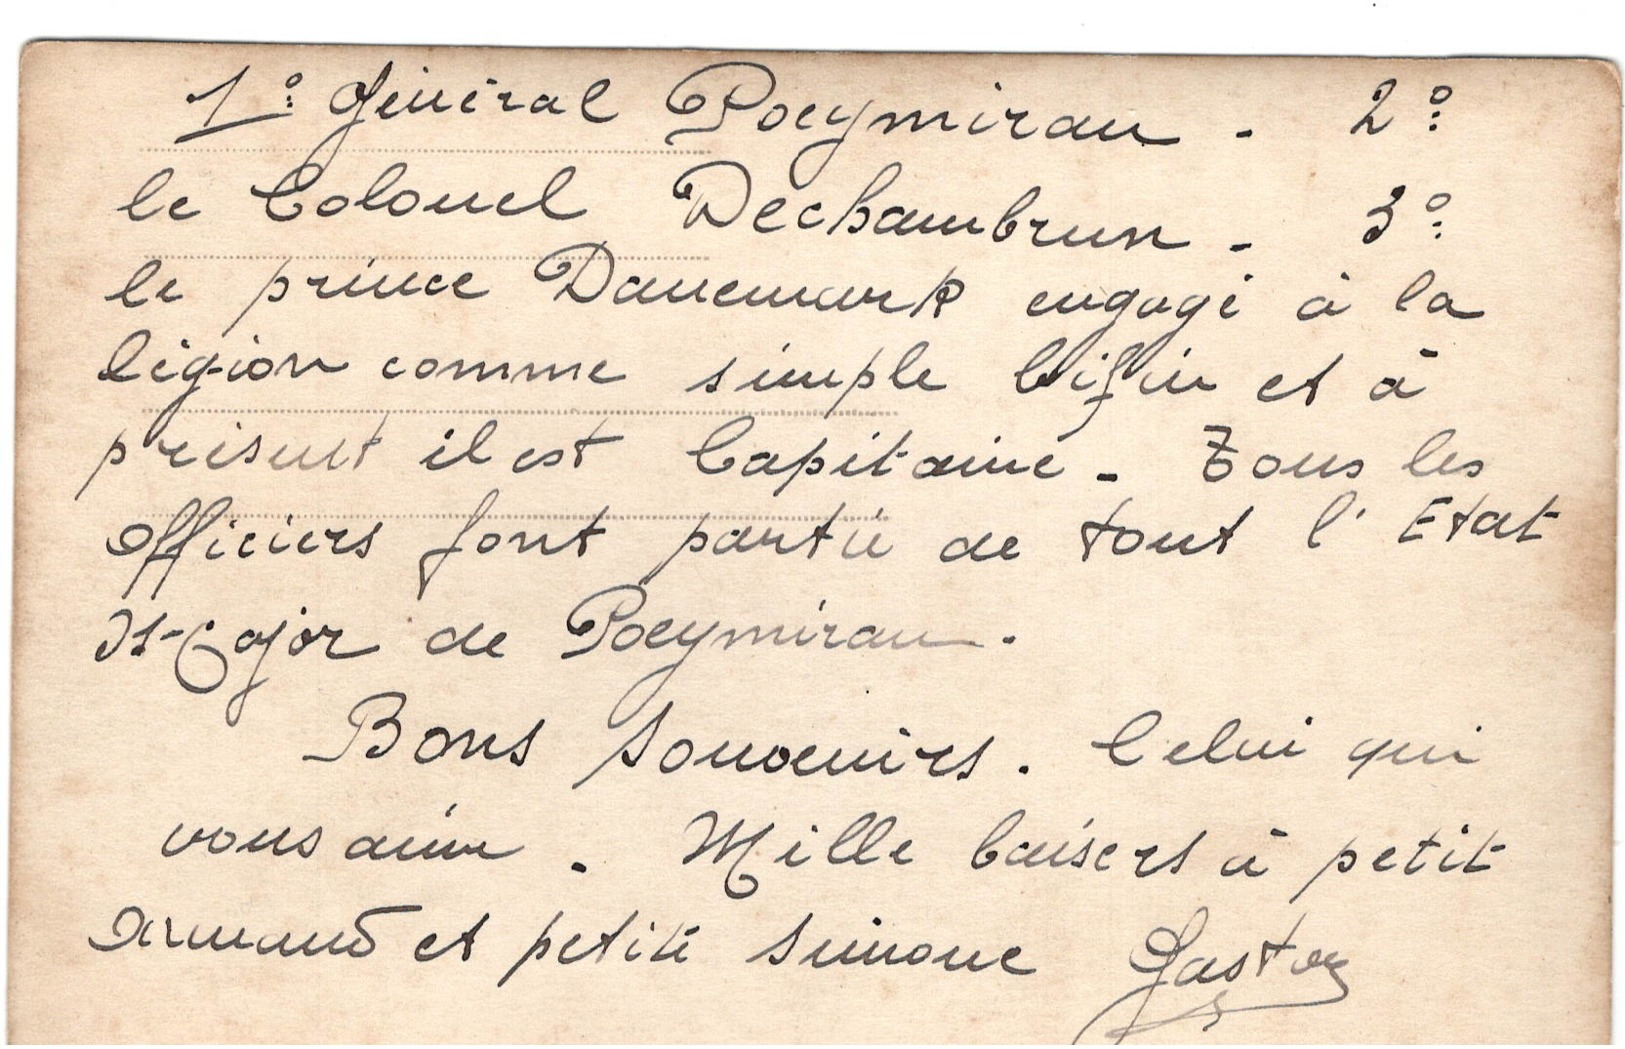 1º: Général Poeymirau - 2º:
le Colonel Dechambrun - 3º:
le prince Danemark engagé à la
légion comme simple bifin et à
présent il est Capitaine - Tous les
officiers font partie de tout l'Etat
Major de Poeymirau.
Bons Souvenirs. Celui qui
vous aime. Mille baisers à petit
Armand et petite Simone Gaston